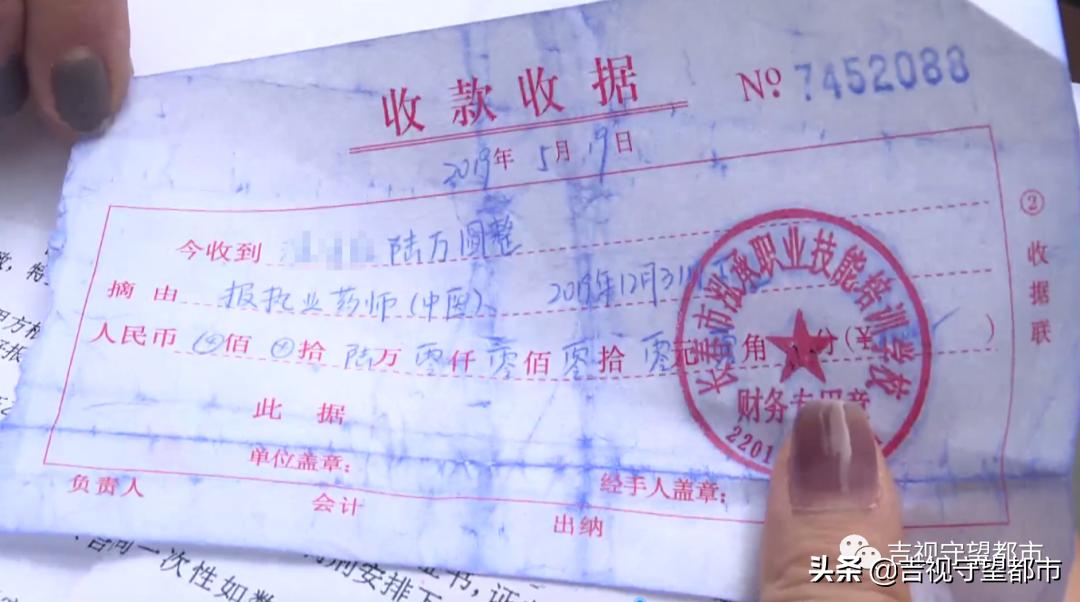 收款收据
Nº 7452088
2019年 5月 19日
今收到 陆万圆整
摘由 报执业药师(中医) 2019年12月31
人民币 佰 拾 陆万 零仟 零佰 零拾 零元 角 分(¥ )
此据
单位盖章: 经手人盖章:
负责人 会计 出纳
② 收据联
长春市泓 职业技能培训学校
财务专用章
2201
合同一次性如数
安排
证书,
吉视守望都市
头条 @吉视守望都市